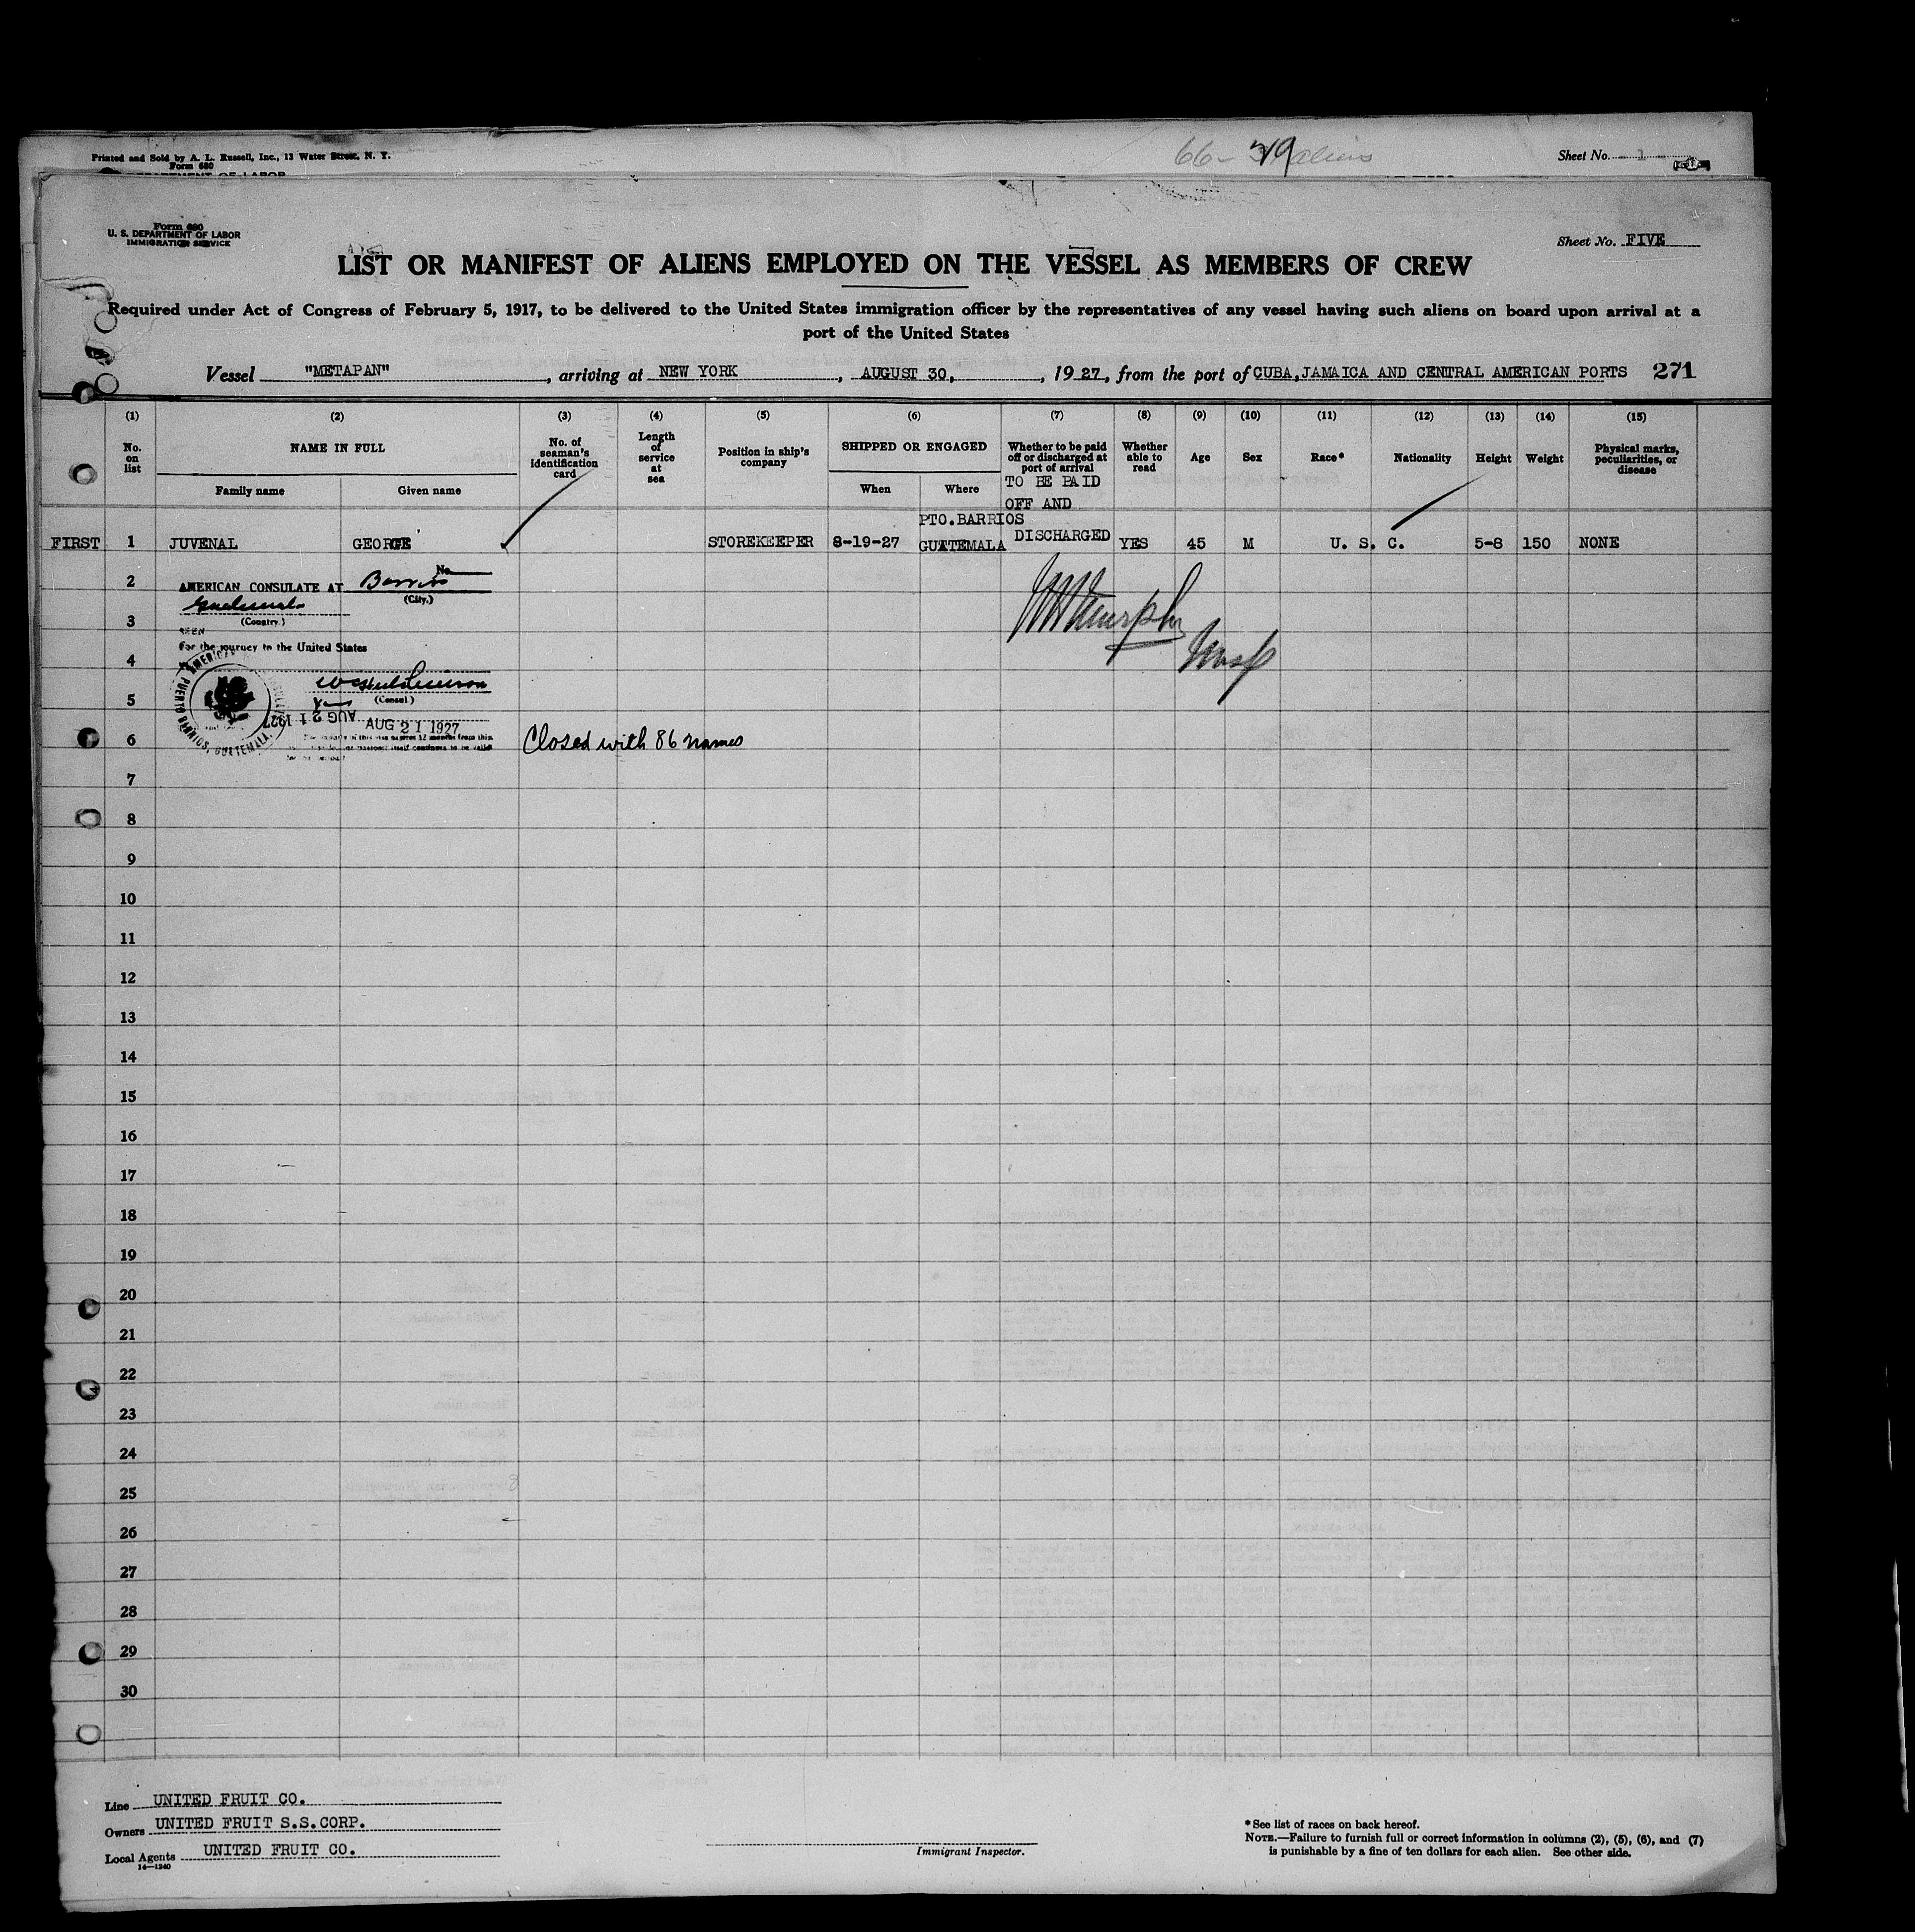 Printed and Sold by A. L. Russell, Inc., 13 Water Street, N. Y.
Form 680
66- aliens
Sheet No. 1
DEPARTMENT OF LABOR
Form 680
U. S. DEPARTMENT OF LABOR
IMMIGRATION SERVICE
Sheet No. FIVE
LIST OR MANIFEST OF ALIENS EMPLOYED ON THE VESSEL AS MEMBERS OF CREW
Required under Act of Congress of February 5, 1917, to be delivered to the United States immigration officer by the representatives of any vessel having such aliens on board upon arrival at a
port of the United States
Vessel "METAPAN", arriving at NEW YORK, AUGUST 30, , 1927, from the port of CUBA,JAMAICA AND CENTRAL AMERICAN PORTS 271
(1) (2) (3) (4) (5) (6) (7) (8) (9) (10) (11) (12) (13) (14) (15)
No. on list
NAME IN FULL
Family name
Given name
No. of seaman's identification card
Length of service at sea
Position in ship's company
SHIPPED OR ENGAGED
When
Where
Whether to be paid off or discharged at port of arrival
Whether able to read
Age
Sex
Race*
Nationality
Height
Weight
Physical marks, peculiarities, or disease
TO BE PAID
OFF AND
PTO.BARRIOS
FIRST 1 JUVENAL GEORGE STOREKEEPER 8-19-27 GUATEMALA DISCHARGED YES 45 M U. S. C. 5-8 150 NONE
2
No.
AMERICAN CONSULATE AT Barrios
(City.)
Guatemala
(Country.)
3
SEEN
For the journey to the United States
4
5
(Consul.)
AUG 21 1927
AUG 21 1927
AMERICAN
PUERTO BARRIOS, GUATEMALA.
6
Closed with 86 names
7
8
9
10
11
12
13
14
15
16
17
18
19
20
21
22
23
24
25
26
27
28
29
30
Line UNITED FRUIT CO.
Owners UNITED FRUIT S.S.CORP.
Local Agents UNITED FRUIT CO.
14—1240
Immigrant Inspector.
* See list of races on back hereof.
NOTE.—Failure to furnish full or correct information in columns (2), (5), (6), and (7)
is punishable by a fine of ten dollars for each alien. See other side.